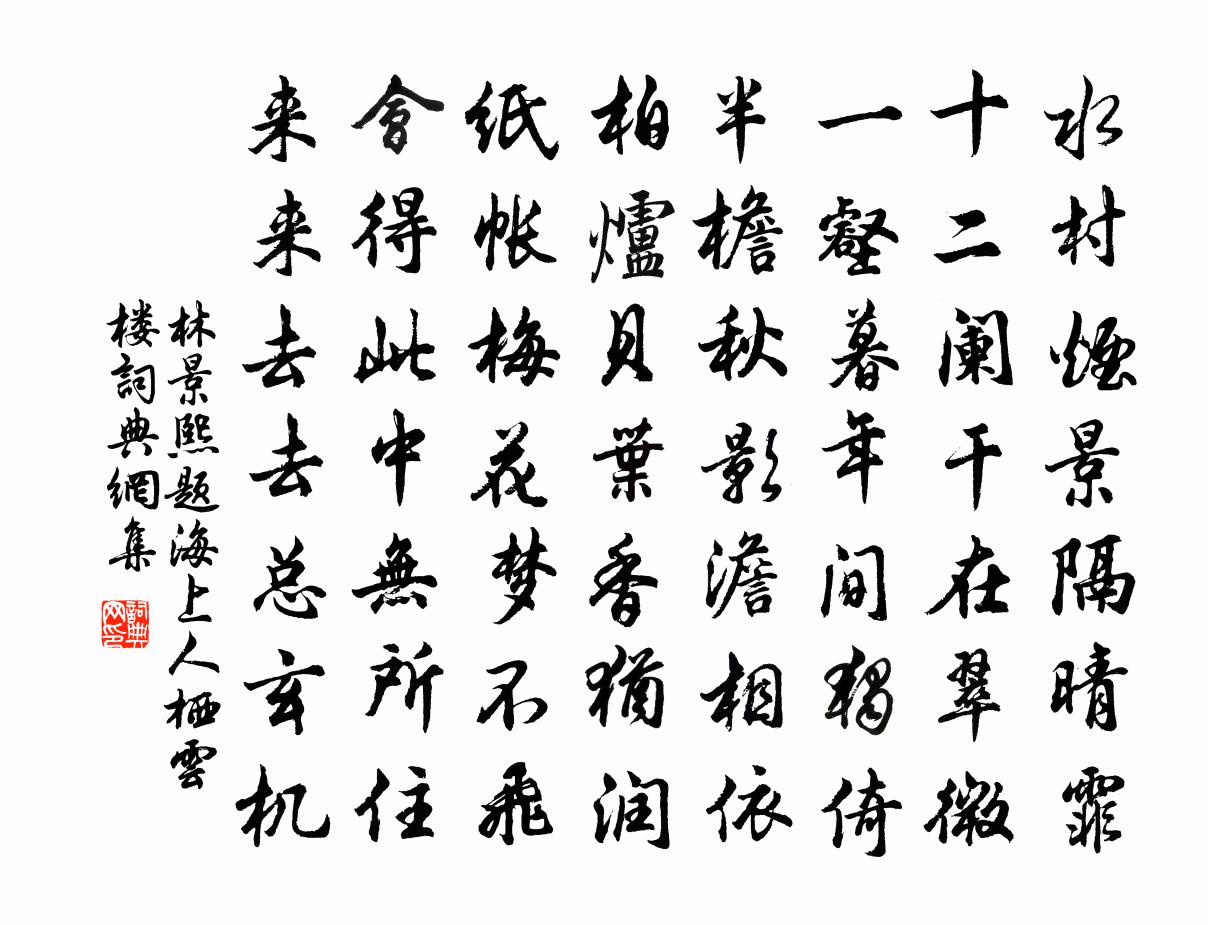 水村煙景隔晴霏
十二阑干在翠微
一壑暮年间独倚
半檐秋影澹相依
柏爐貝葉香猶润
纸帐梅花梦不飛
會得此中無所住
来来去去总玄机
林景熙题海上人栖雲
楼詞典網集
詞典网印